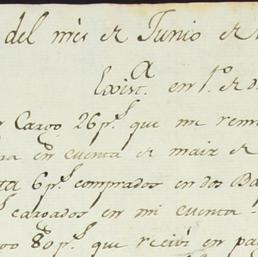 del mes de Junio de
Exist.a en 1.o de
Cargo 26 p.s que me
en cuenta de maiz de
6 p.s comprados en dos
cargados en mi cuenta
80 p.s que recivi en